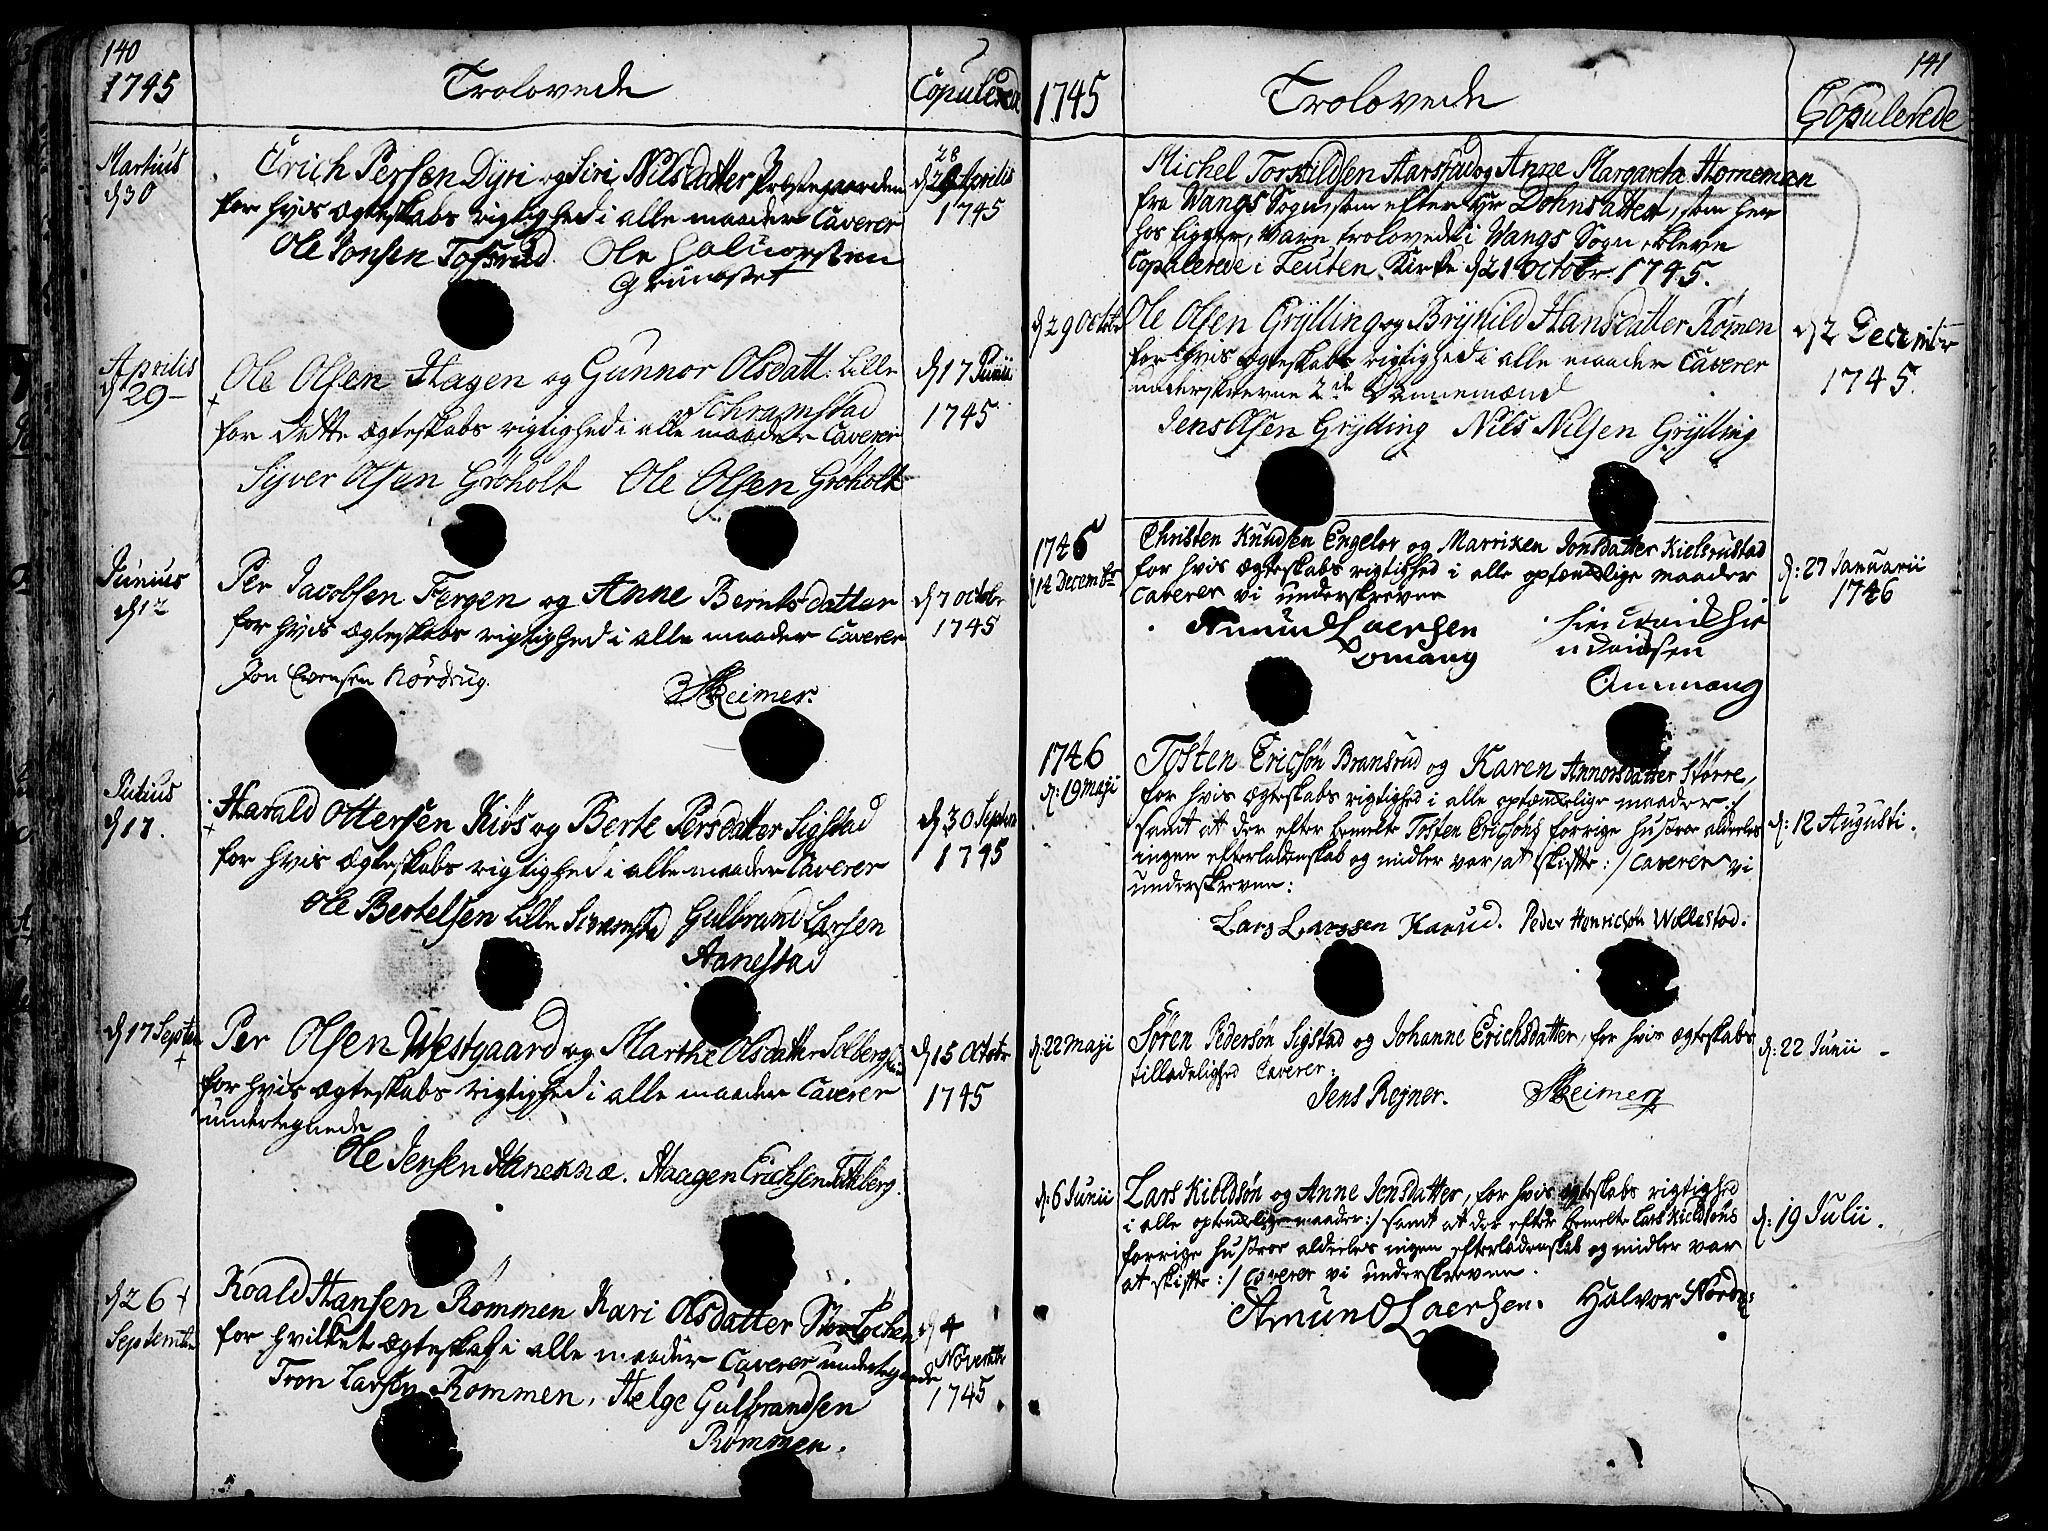 140
1745
Trolovede
Copulerede
Martius
d 30
Erich Persen Dyri og Siri Nilsdatter Præstegaarden
for hvis ægteskabs rigtighed i alle maader Caverer
Ole Jonsen Tofsrud Ole Halvorsen
Grundset
28
d 29 Aprilis
1745
Aprilis
d 29 -
Ole Olsen Hagen og Gunnor Olsdatt: Lille
Schramstad
for dette ægteskabs rigtighed i alle maader Caverer
Syver Olsen Grøholt Ole Olsen Grøholt
d 17 Junii
1745
Junius
d 12
Per Jacobsen Fergen og Anne Berntsdatter
for hvis ægteskabs rigtighed i alle maader Caverer
Jon Evensen Nordrug. Skeimer.
d 7 Octobr
1745
Julius
d 17.
Harald Ottersen Kiøs og Berte Persdatter Sigstad
for hvis ægteskabs rigtighed i alle maader Caverer
Ole Bertelsen Lille Gulbrand Larsen
Aanestad
d 30 Septem
1745
d 17 Septem
Per Olsen Westgaard og Marthe Olsdatter
for hvis ægteskabs rigtighed i alle maader Caverer
undertegnede
Ole Jensen Haneknæ. Haagen Erichsen
d 15 Octobr
1745
d 26
Septembr
Roald Hansen Rømmen Kari Olsdatter
for hvilket ægteskab i alle maader Caverer undertegnede
Tron Larsen Rommen, Helge Gulbrandsen
Rømmen.
d 4
Novembr
1745
141
1745
Trolovede
Copulerede
Michel Torkildsen Aarstad og Anne Margareta Horneman
fra Wangs Sogn, som efter Hr Dohns atter, som her
hos ligger, vare trolovede i Wangs Sogn, bleve
Copulerede i Leuten Kirke d 21 Octobr 1745.
d 29 Octobr
Ole Olsen Grylling og Brynild Hansdatter Rømen
for hvis ægteskabs rigtighed i alle maader Caverer
underskrevne 2de Dannemænd
Jens Olsen Grylling Nils Nilsen Grylling
d 2 Decembr
1745.
1745
d 14 Decembr
Christen Knudsen Engelor og Marriken Jonsdatter Kielsrustad
for hvis ægteskabs rigtighed i alle optænkelige maader
caverer vi underskrevne
Amund Laersen
Lomang
Ommang
d: 27 Januarii
1746
1746
d: 19 Maji
Tosten Ericsøn Bransrud og Karen Annorsdatter Større,
for hvis ægteskabs rigtighed i alle optænkelige maader :/
samt at der efter bemelte Tosten Ericsøns forrige hustroe alderles
ingen efterladenskab og midler var at skiffte :/ caverer vi
underskrevne:
Lars Larssen Harud. Peder Henrichsøn Wollestad.
d: 12 Augusti.
d: 22 Maji
Søren Pedersøn Sigstad og Johanne Erichsdatter, for hvis ægteskabs
tilladelighed Caverer:
Jens Rejner. Skeimer
d: 22 Junii -
d: 6 Junii
Lars Kieldsøn og Anne Jensdatter, for hvis ægteskabs rigtighed
i alle optenkelige maader :/ samt at der efter bemelte Lars Kieldsøns
forrige hustroe alderles ingen efterladenskab og midler var
at skiffte :/ Caverer vi underskrevne.
Amund Laersen. Halvor
d: 19 Julii.